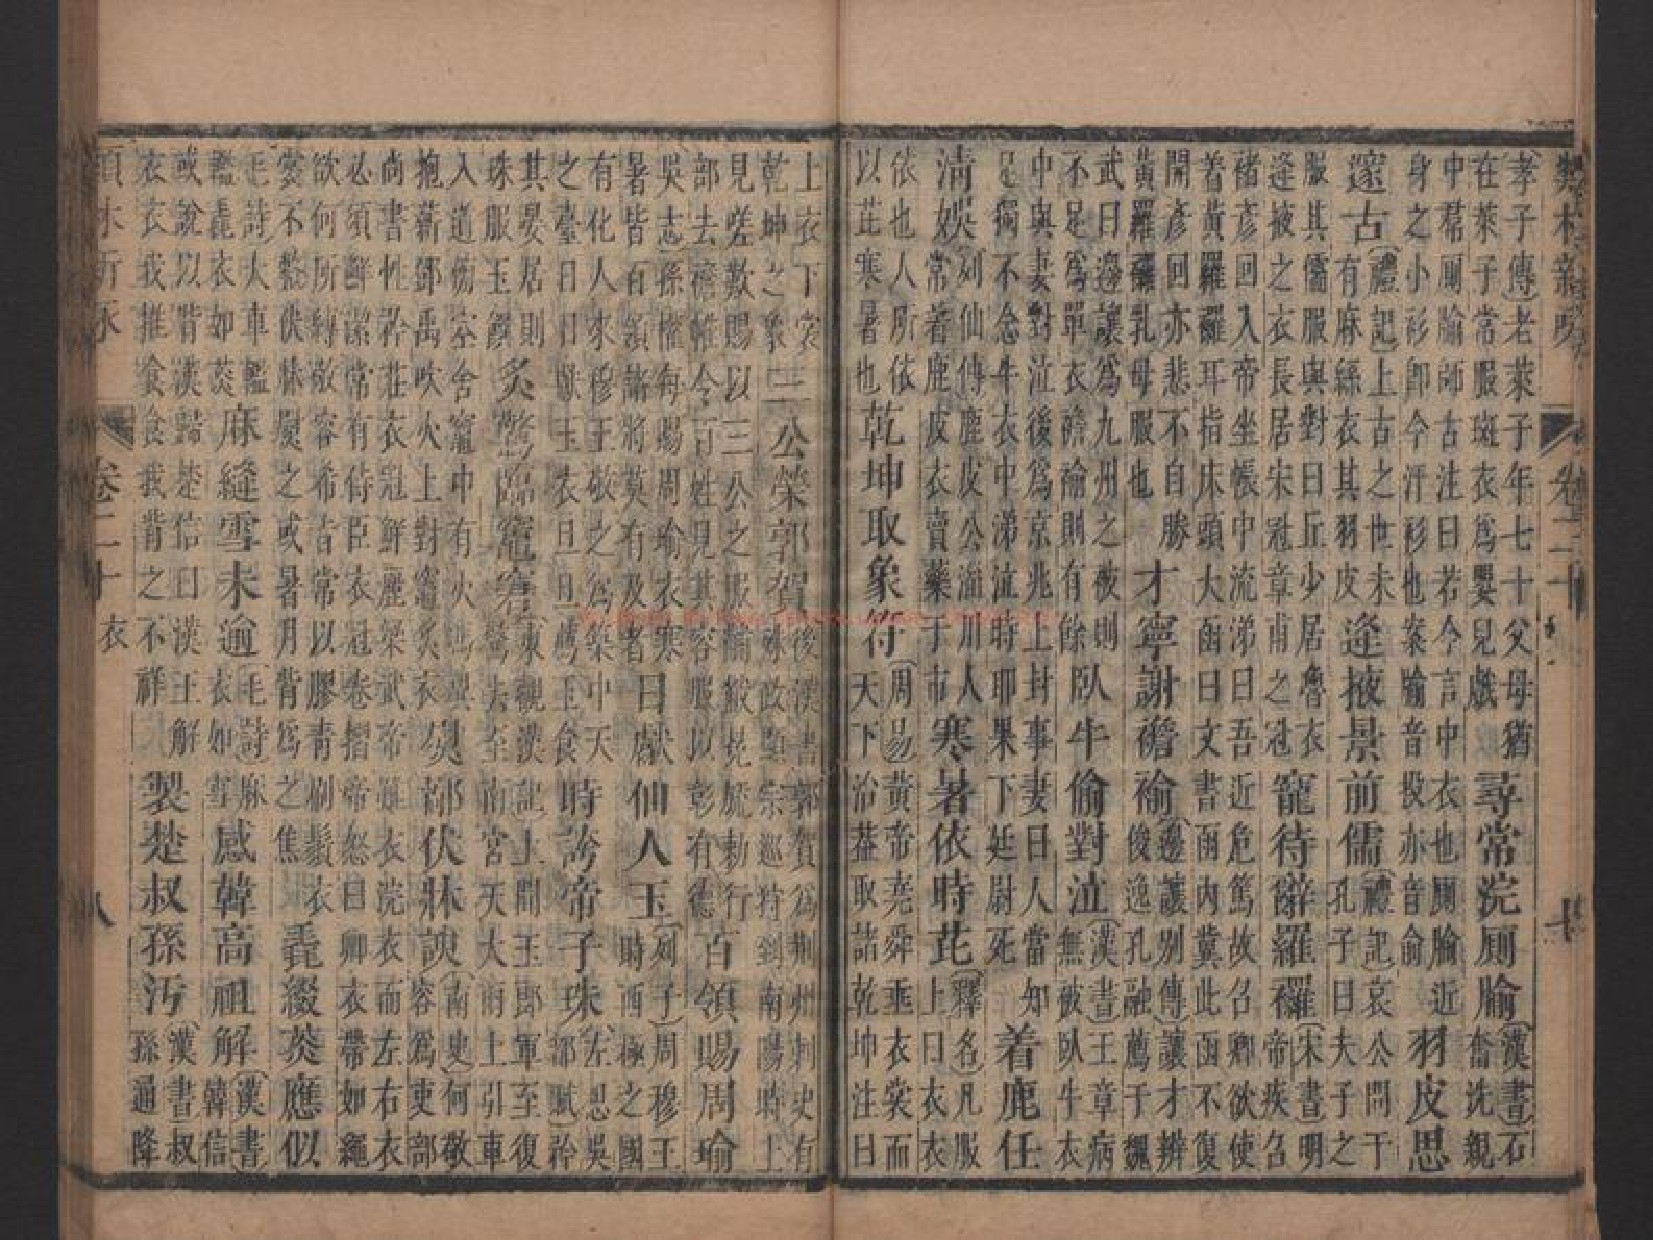 類林新咏 卷二十
孝子傳老萊子年七十父母猶
在萊子常服斑衣爲嬰兒戲
尋常浣厠腧
漢書石
奮洗親
中帬厠腧師古注曰若今言中衣也厠腧近
身之小衫卽今汗衫也案腧音投亦音俞
羽皮思
邃古
禮記上古之世未
有麻絲衣其羽皮
逢掖景前儒
禮記哀公問于
孔子曰夫子之
服其儒服與對曰丘少居魯衣
逢掖之衣長居宋冠章甫之冠
寵待辭羅䙰
宋書明
帝疾召
褚彥回入帝坐帳中流涕曰吾近危篤故召卿欲使
着黃羅䙰耳指床頭大函曰文書函內冀此函不復
開彥回亦悲不自勝
黃羅䙰乳母服也
才寧謝襜褕
邊讓別傳讓才辨
俊逸孔融薦于魏
武曰邊讓爲九州之被則
不足爲單衣襜褕則有餘
臥牛偷對泣
漢書王章病
無被臥牛衣
中與妻對泣後爲京兆上封事妻曰人當知
足獨不念牛衣中涕泣時耶果下廷尉死
着鹿任
清娛
列仙傳鹿皮公淄川人
常着鹿皮衣賣藥于市
寒暑依時芘
釋名凡服
上曰衣衣
依也人所依
以芘寒暑也
乾坤取象符
周易黃帝堯舜垂衣裳而
天下治葢取諸乾坤注曰
上衣下裳
乾坤之象
三公榮郭賀
後漢書郭賀爲荆州刺史有
殊政顯宗巡狩到南陽時上
見嗟歎賜以三公之服黼黻冕旒勅行
部去襜帷令百姓見其容服以彰有德
百領賜周瑜
吳志孫權每賜周瑜衣寒
暑皆百領諸將莫有及者
日獻仙人玉
列子周穆王
時西極之國
有化人來穆王敬之爲築中天
之臺日日獻玉衣旦旦薦玉食
時誇帝子珠
左思吳
都賦矜
其晏居則
珠服玉饌
炙驚臨竈窘
東觀漢記上聞王郎軍至復
驚去至南宮天大雨上引車
入道傍空舍竈中有火馮異
抱薪鄧禹吹火上對竈炙衣
熨鄙伏牀諛
南史何敬
容爲吏部
尚書性矜莊衣冠鮮麗梁武帝雖衣浣衣而左右衣
必須鮮潔常有侍臣衣冠卷摺帝怒曰卿衣帶如繩
欲何所縛敬容希旨常以膠青刷鬚衣
裳不整伏牀熨之或暑月背爲之焦
毳綴菼應似
毛詩大車檻
檻毳衣如菼
麻縫雪未逾
毛詩麻
衣如雪
感韓高祖解
漢書
韓信
或說以背漢歸楚信曰漢王解
衣衣我推食食我背之不祥
製楚叔孫汚
漢書叔
孫通降
卷二十 衣 八